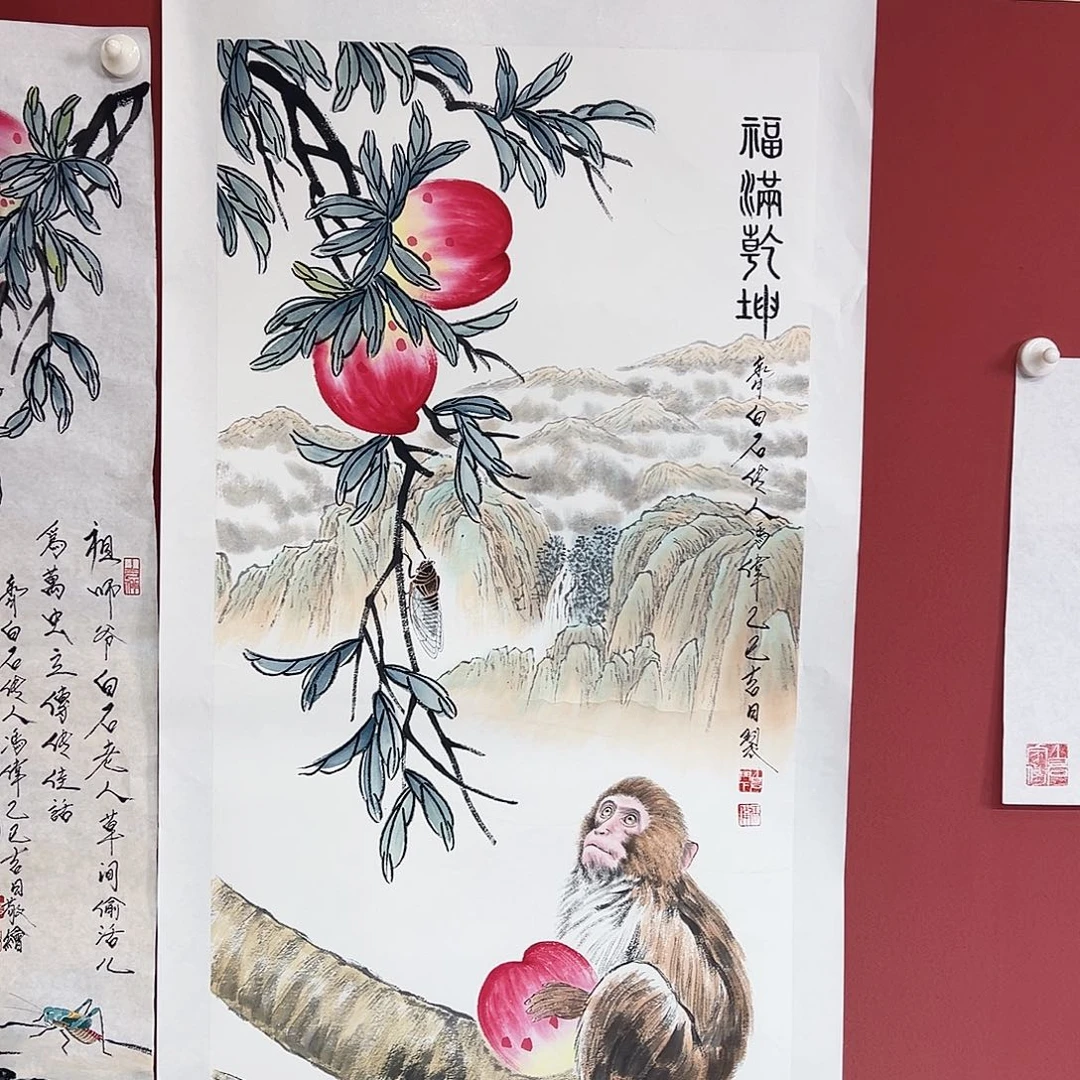 福滿乾坤
齊白石傳人馮偉乙巳吉日製
祖師爷白石老人草间偷活儿
爲萬虫立傳傳佳話
齊白石傳人馮偉乙巳吉日敬繪